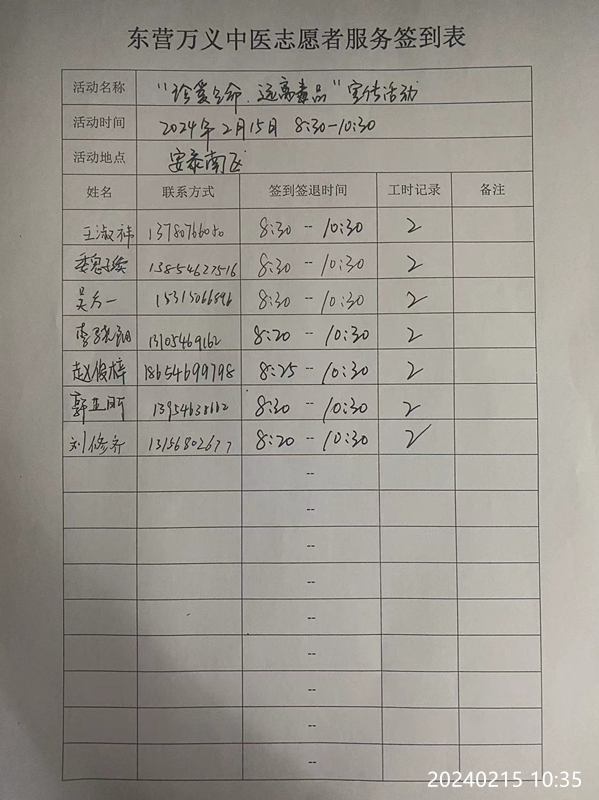 东营万义中医志愿者服务签到表
活动名称 "珍爱生命.远离毒品"宣传活动
活动时间 2024年2月15日 8:30-10:30
活动地点 安泰南区
姓名 联系方式 签到签退时间 工时记录 备注
王淑祎 13780766080 8:30 -- 10:30 2
13854627516 8:30 -- 10:30 2
吴方一 15315066896 8:30 -- 10:30 2
13105469162 8:20 -- 10:30 2
赵俊梓 18654699798 8:25 -- 10:30 2
郭 8:30 -- 10:30 2
刘修齐 13156802677 8:20 -- 10:30 2
--
--
--
--
--
--
--
--
--
20240215 10:35